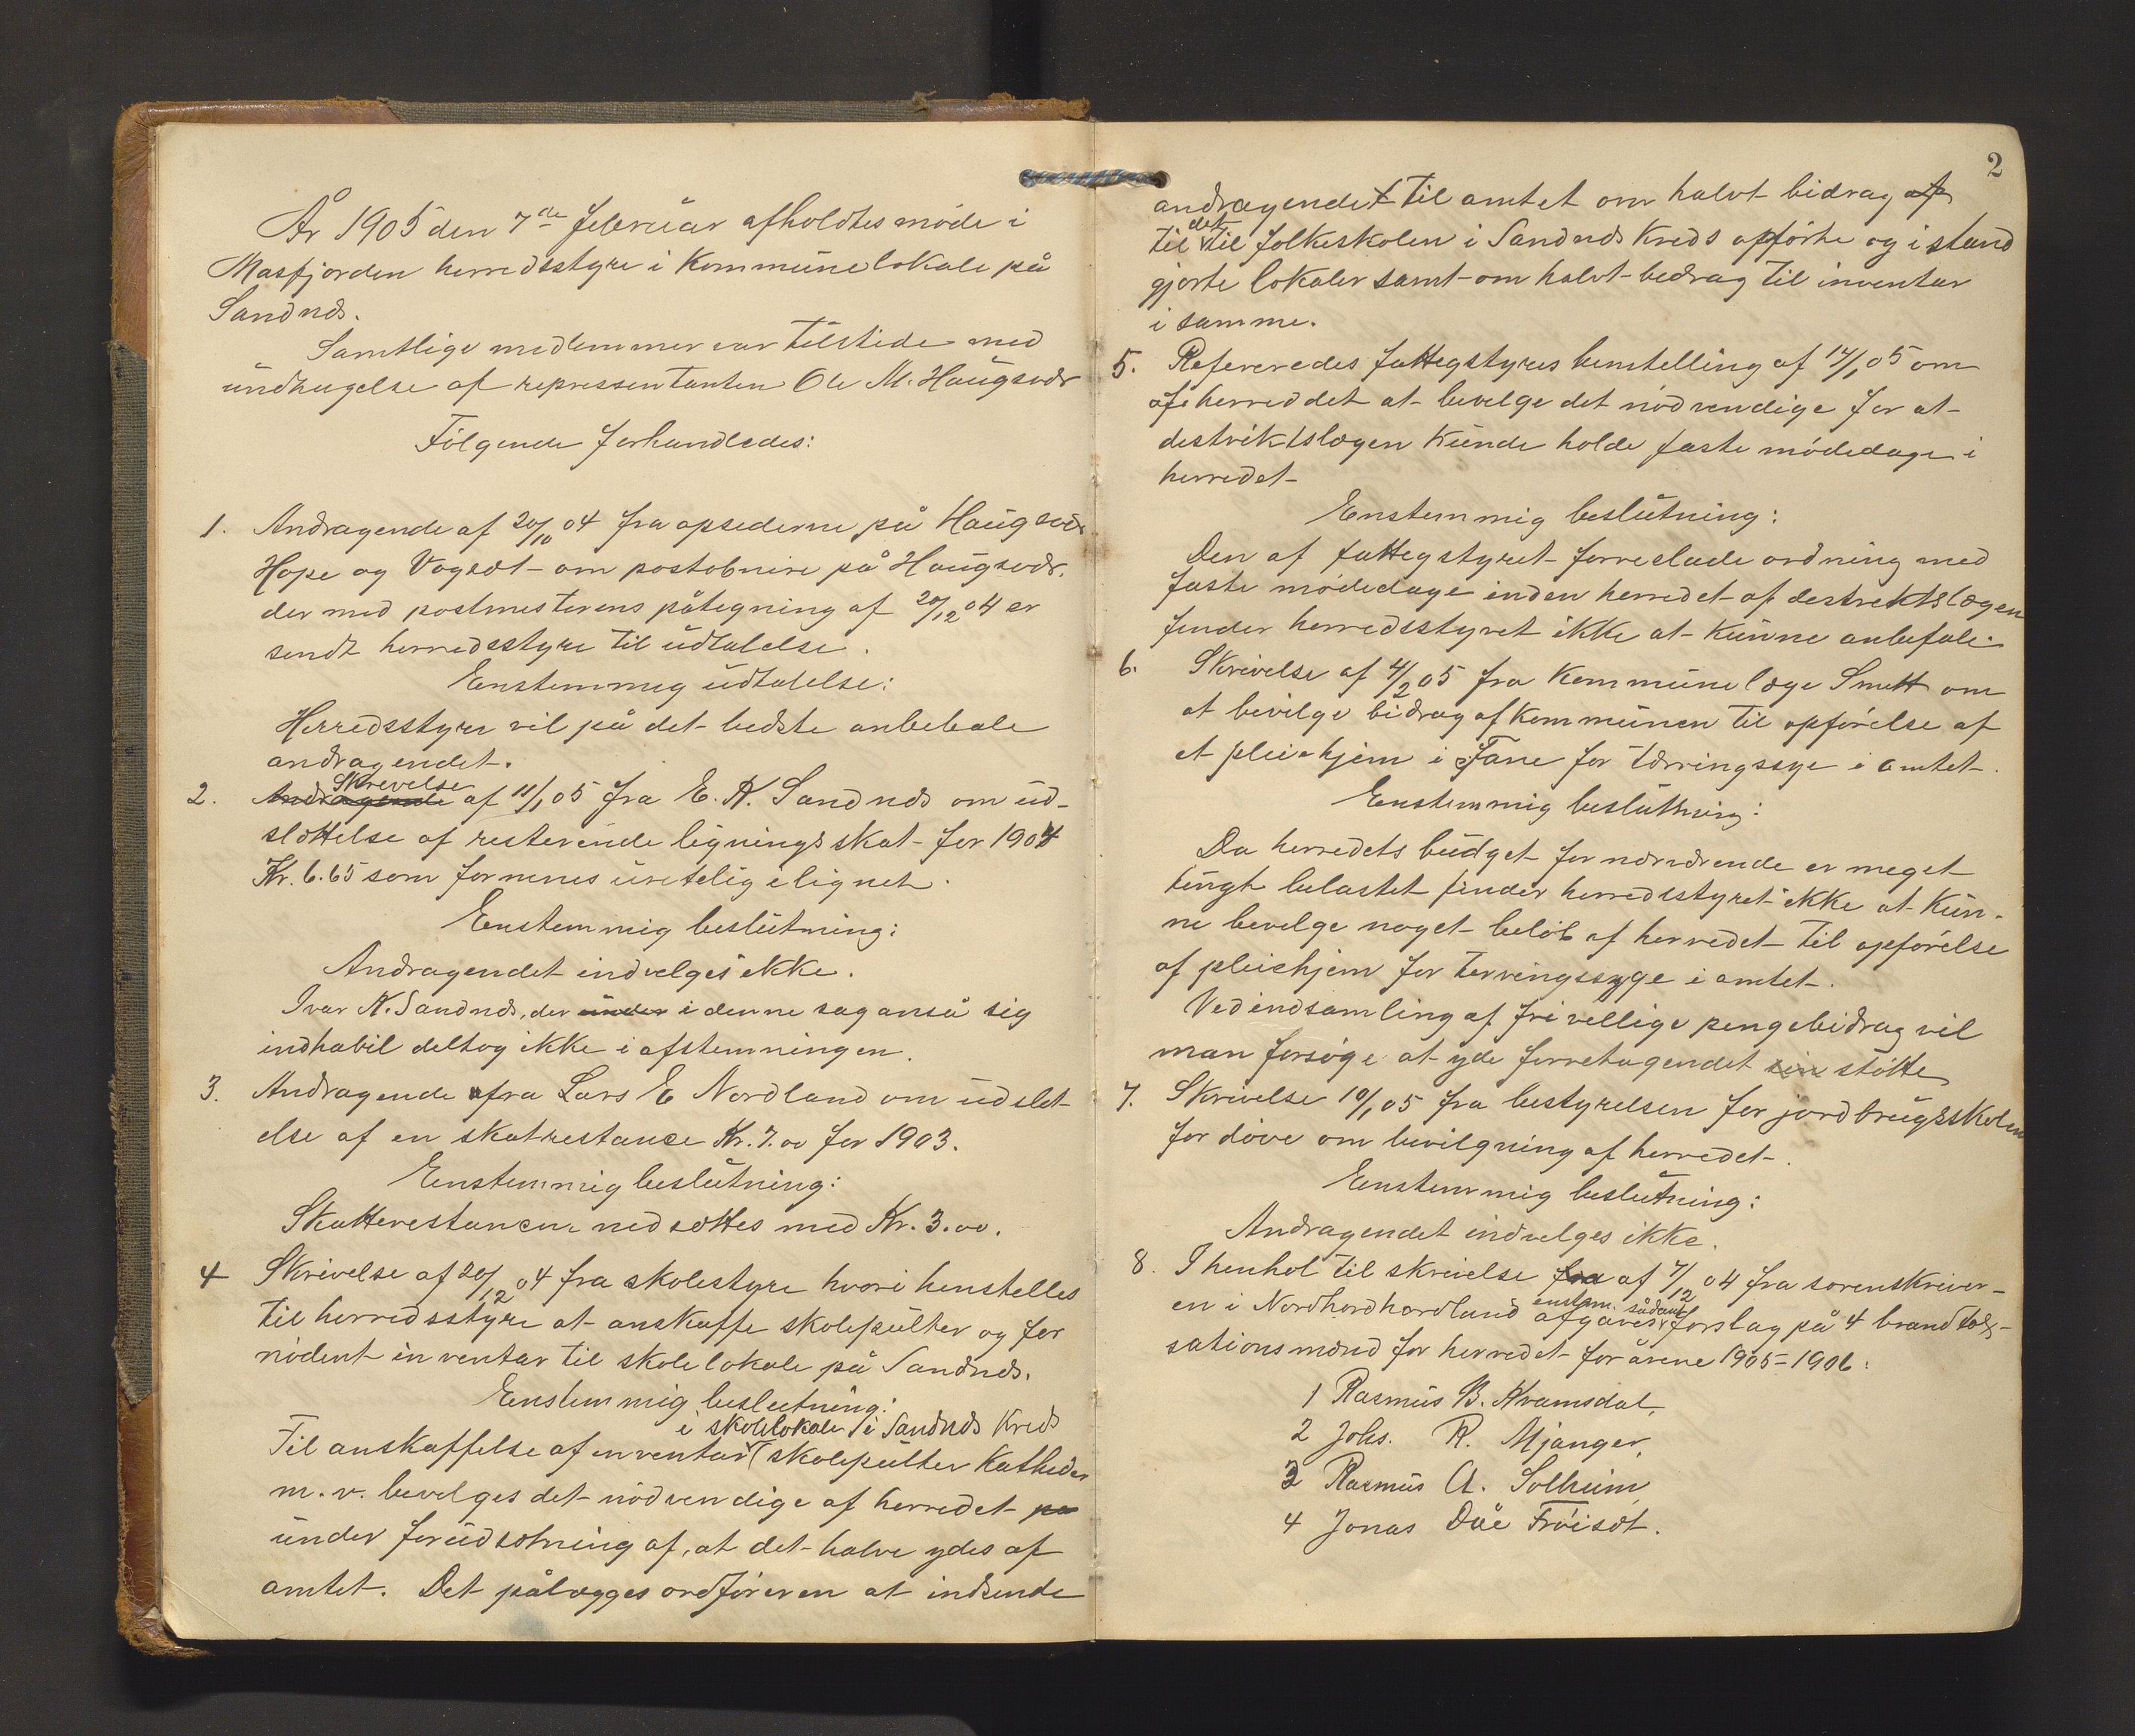 År 1905 den 7de februar afholdtes møde i
Masfjorden herredsstyre i Kommunelokale på
Sandnæs.
Samtlige medlemmer var tilstede med
undtagelse af repressentanten Ole M. Haugsvær
Følgende forhandledes:
1. Andragende af 20/10 04 fra opsederne på Haugsvær
Hope og Vogsæt om postobnire på Haugsvær.
der med postmesterens påtegning af 20/12 04 er
sendt herredsstyre til udtalelse.
Enstemmig udtalelse:
Herredsstyre vil på det bedste anbebale
andragendet.
Skrevelse
2. Andragende af 11/1 05 fra E. A. Sandnæs om ud-
slættelse af resterende ligningsskat for 1904
Kr. 6.65 som formenes uretelig ilignet.
Enstemmig beslutning:
Andragendet indvelges ikke.
Ivar N. Sandnæs, der under i denne sag anså sig
indhabil deltog ikke i afstemningen.
3. Andragende fra Lars E Nordland om udslet-
else af en skatrestance Kr. 7.00 for 1903.
Enstemmig beslutning:
Skatterestancen nedsættes med Kr. 3.00.
4 Skrivelse af 20/12 04 fra skolestyre hvori henstelles
til herredsstyre at anskaffe skolepulter og for
nødent inventar til skolelokale på Sandnæs.
Enstemmig beslutning:
i skolelokaler i Sandnæs Kreds
Til anskaffelse af inventar (skolepulter Katheder
m. v. bevelges det nødvendige af herredet på
under forudsætning af, at det halve ydes af
amtet. Det pålægges ordføreren at indsende
2
andragendet til amtet om halvt bidrag af
det
til til folkeskolen i Sandnæs Kreds opførte og i stand
gjorte lokaler samt om halvt bedrag til inventar
i samme.
5. Refereredes fattegstyres hemstelling af 14/1 05 om
af herreddet at bevelge det nødvendige for at
destriktslægen kunde holde faste mødedage i
herredet
Enstemmig beslutning:
Den af fattegstyret forreslade ordning med
faste mødedage inden herredet af destrektslægen
finder herredsstyret ikke at kunne anbefale.
6. Skrivelse af 4/2 05 fra Kommunelæge Smitt om
at bevilge bidrag af Kommunen til opførelse af
et pleiehjem i Fane for tærringssyge i amtet.
Enstemmig beslutning:
Da herredets budget for nærværende er meget
tungt belastet finder herredsstyret ikke at kun-
ne bevelge noget beløb af herredet til opførelse
af pleiehjem for terringssyge i amtet.
Ved indsamling af frivellige pengebidrag vil
man forsøge at yde forretagendet sin støtte
7. Skrivelse 10/1 05 fra bestyrelsen for jordbrugsskolen
for døve om bevilgning af herredet.
Enstemmig beslutning:
Andragendet indvelges ikke.
8. I henhol til skreielse fra af 7/12 04 fra sorenskriver-
enstem. sådant
en i Nordhordhordland afgaves forslag på 4 brandtak-
sationsmænd for herredet for årene 1905-1906:
1 Rasmus B. Kvamsdal,
2 Johs. R. Mjanger,
3 Rasmus A. Solheim,
4 Jonas Däe Frøisæt.